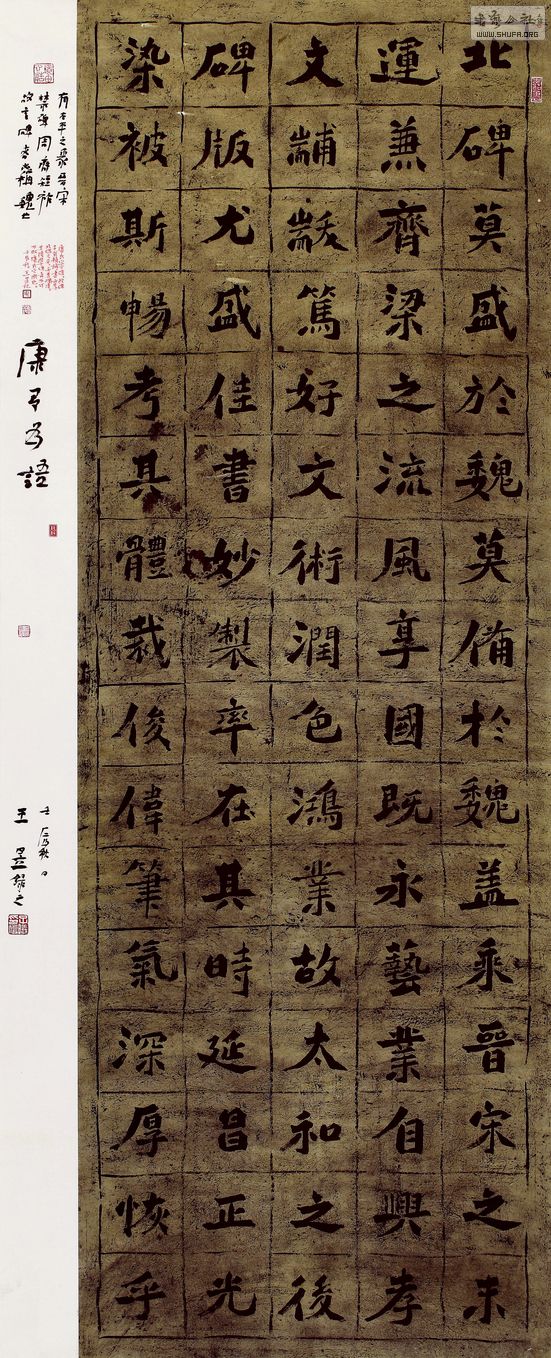 北碑莫盛於魏莫備於魏蓋乘晉宋之末
運兼齊梁之流風享國既永藝業自興孝
文黼黻篤好文術潤色鴻業故太和之後
碑版尤盛佳書妙製率在其時延昌正光
染被斯暢考其體裁俊偉筆氣深厚恢乎
有太平之象晉宋
禁碑周齊短祚
故言碑者必稱魏也
康有為語
壬辰秋日
王昱錄之
WWW.SHUFA.ORG